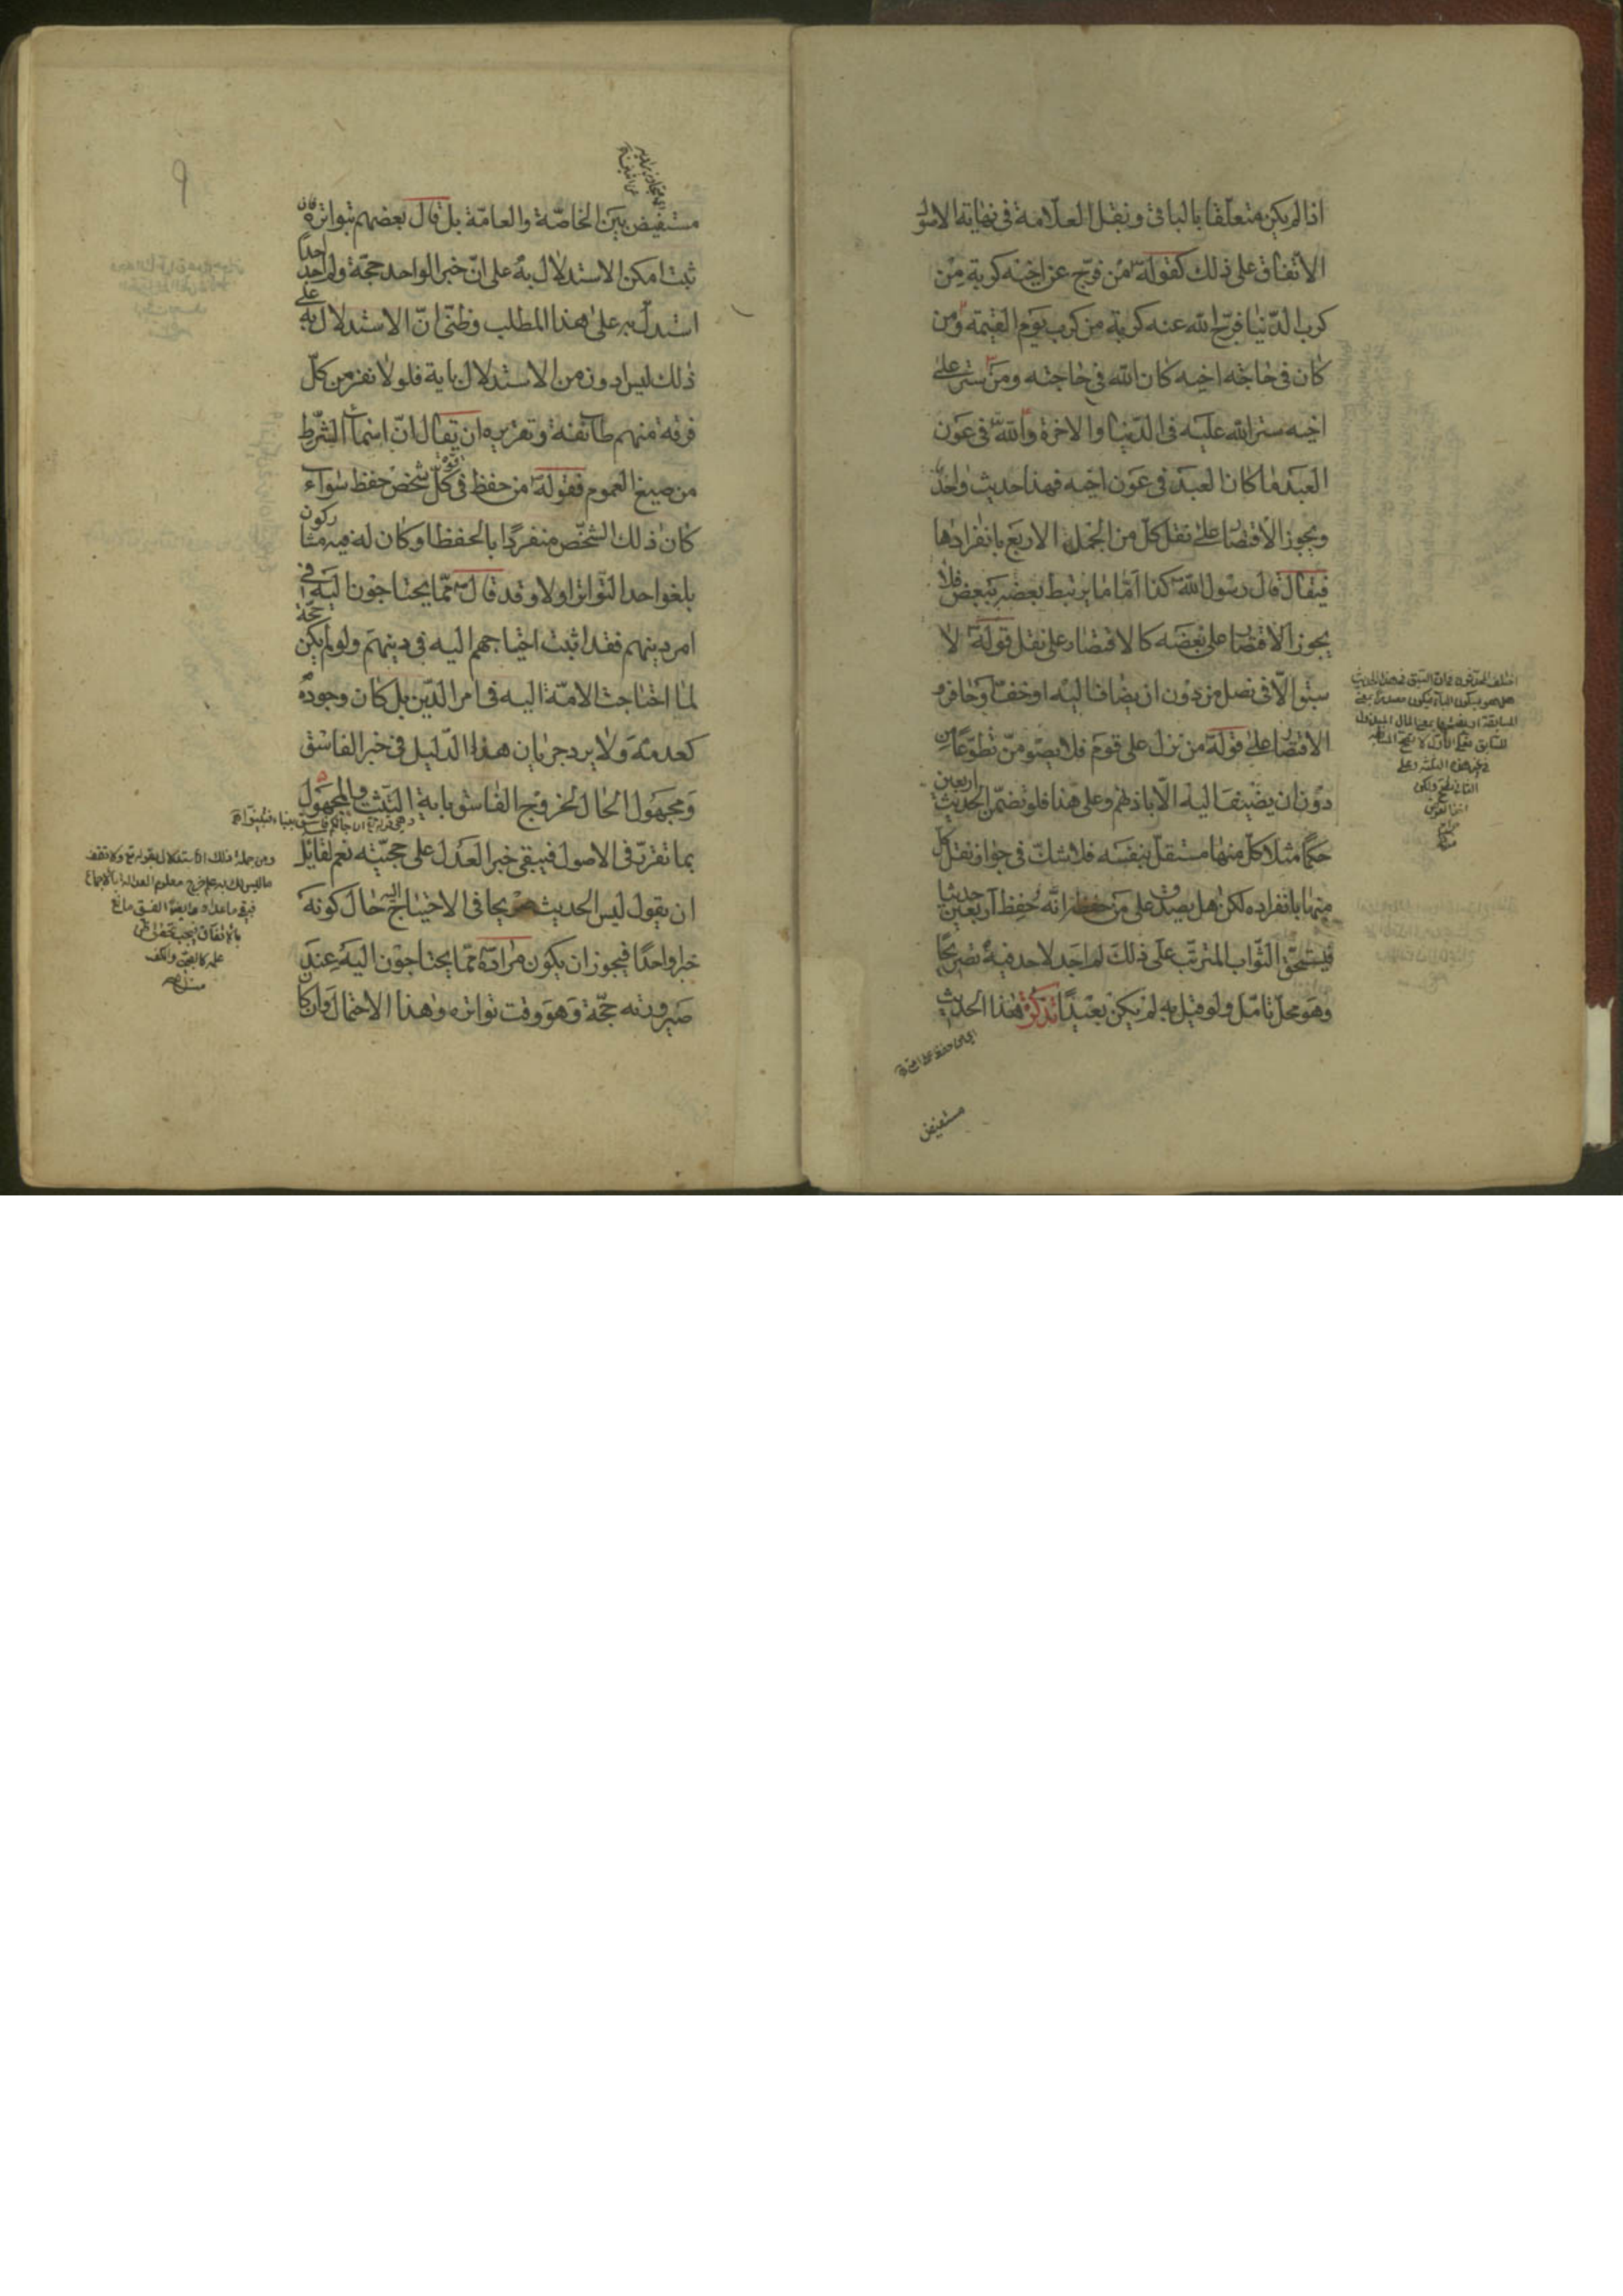 اذا لم يكن متعلقا بالباقى ونقل العلامة فى نهاية الاصول
الاتفاق على ذلك كقوله من فرّج عن اخيه كربة من
كرب الدّنيا فرّج الله عنه كربة من كرب يوم القيمة ومن
كان فى حاجة اخيه كان الله فى حاجته ومن ستر على
اخيه ستر الله عليه فى الدّنيا والاخرة والله فى عون
العبد ما كان العبد فى عون اخيه فهذا حديث واحد
ويجوز الاقتصار على نقل كل من الجمل الاربع بانفرادها
فيقال قال رسول الله كذا امّا ما يرتبط بعضه ببعض فلا
يجوز الاقتصار على بعضه كالاقتصار على نقل قوله لا
سبق الّا فى نصل من دون ان يضاف اليه او خفّ او حافر و
الاقتصار على قوله من نزل على قوم فلا يصومنّ تطوّعا من
دون ان يضيف اليه الّا باذنهم وعلى هذا فلو تضمّن الحديث اربعين
حكما مثلا كل منها مستقلّ بنفسه فلا شكّ فى جواز نقل كل
منها بانفراده لكن هل يصدق على من حفظه انّه حفظ اربعين حديثا
فيستحقّ الثّواب المترتّب على ذلك لم اجد لاحد فيه تصريحا
وهو محل تامّل ولو قيل به لم يكن بعيدا تذكرة هذا الحديث
مستفيض
اختلف المحدثون فى ان السبق فى هذا الحديث
هل هو بسكون الباء ليكون مصدرا بمعنى
المسابقة او بفتحها بمعنى المال المبذول
للسابق فعلى الاول لا تصح المسابقة
فى غير هذه الثلثة وعلى
الثانى يصح ولكن
٩
مستفيض بين الخاصّة والعامّة بل قال بعضهم بتواتره فان
ثبت امكن الاستدلال به على انّ خبر الواحد حجّة ولم اجد احدا
استدلّ به على هذا المطلب وظنّى انّ الاستدلال به على
ذلك ليس ادون من الاستدلال باية فلولا نفر من كلّ
فرقة منهم طائفة وتقريره ان يقال انّ اسماء الشّرط
من صيغ العموم فقوله من حفظ فى قوة كلّ شخص حفظ سواء
كان ذلك الشخص منفردا بالحفظ او كان له فيه مشاركون
بلغوا حد التّواتر اولا وقد قال ممّا يحتاجون اليه فى
امر دينهم فقد اثبت احتياجهم اليه فى دينهم ولو لم يكن حجّة
لما احتاجت الامّة اليه فى امر الدّين بل كان وجوده
كعدمه ولا يرد جريان هذا الدّليل فى خبر الفاسق
ومجهول الحال لخروج الفاسق باية التثبت والمجهول
وهى قوله ان جاءكم فاسق بنباء فتبينوا
بما تقرّر فى الاصول فيبقى خبر العدل على حجيّته نعم لقايل
ان يقول ليس الحديث صريحا فى الاحتياج اليه حال كونه
خبرا واحدا فيجوز ان يكون مراده ممّا يحتاجون اليه عند
صيرورته حجّة وهو وقت تواتره وهذا الاحتمال وان كان
ومن جملة ذلك الاستدلال بقوله تع ولا تقف
ما ليس لك به علم خرج معلوم العدالة بالاجماع